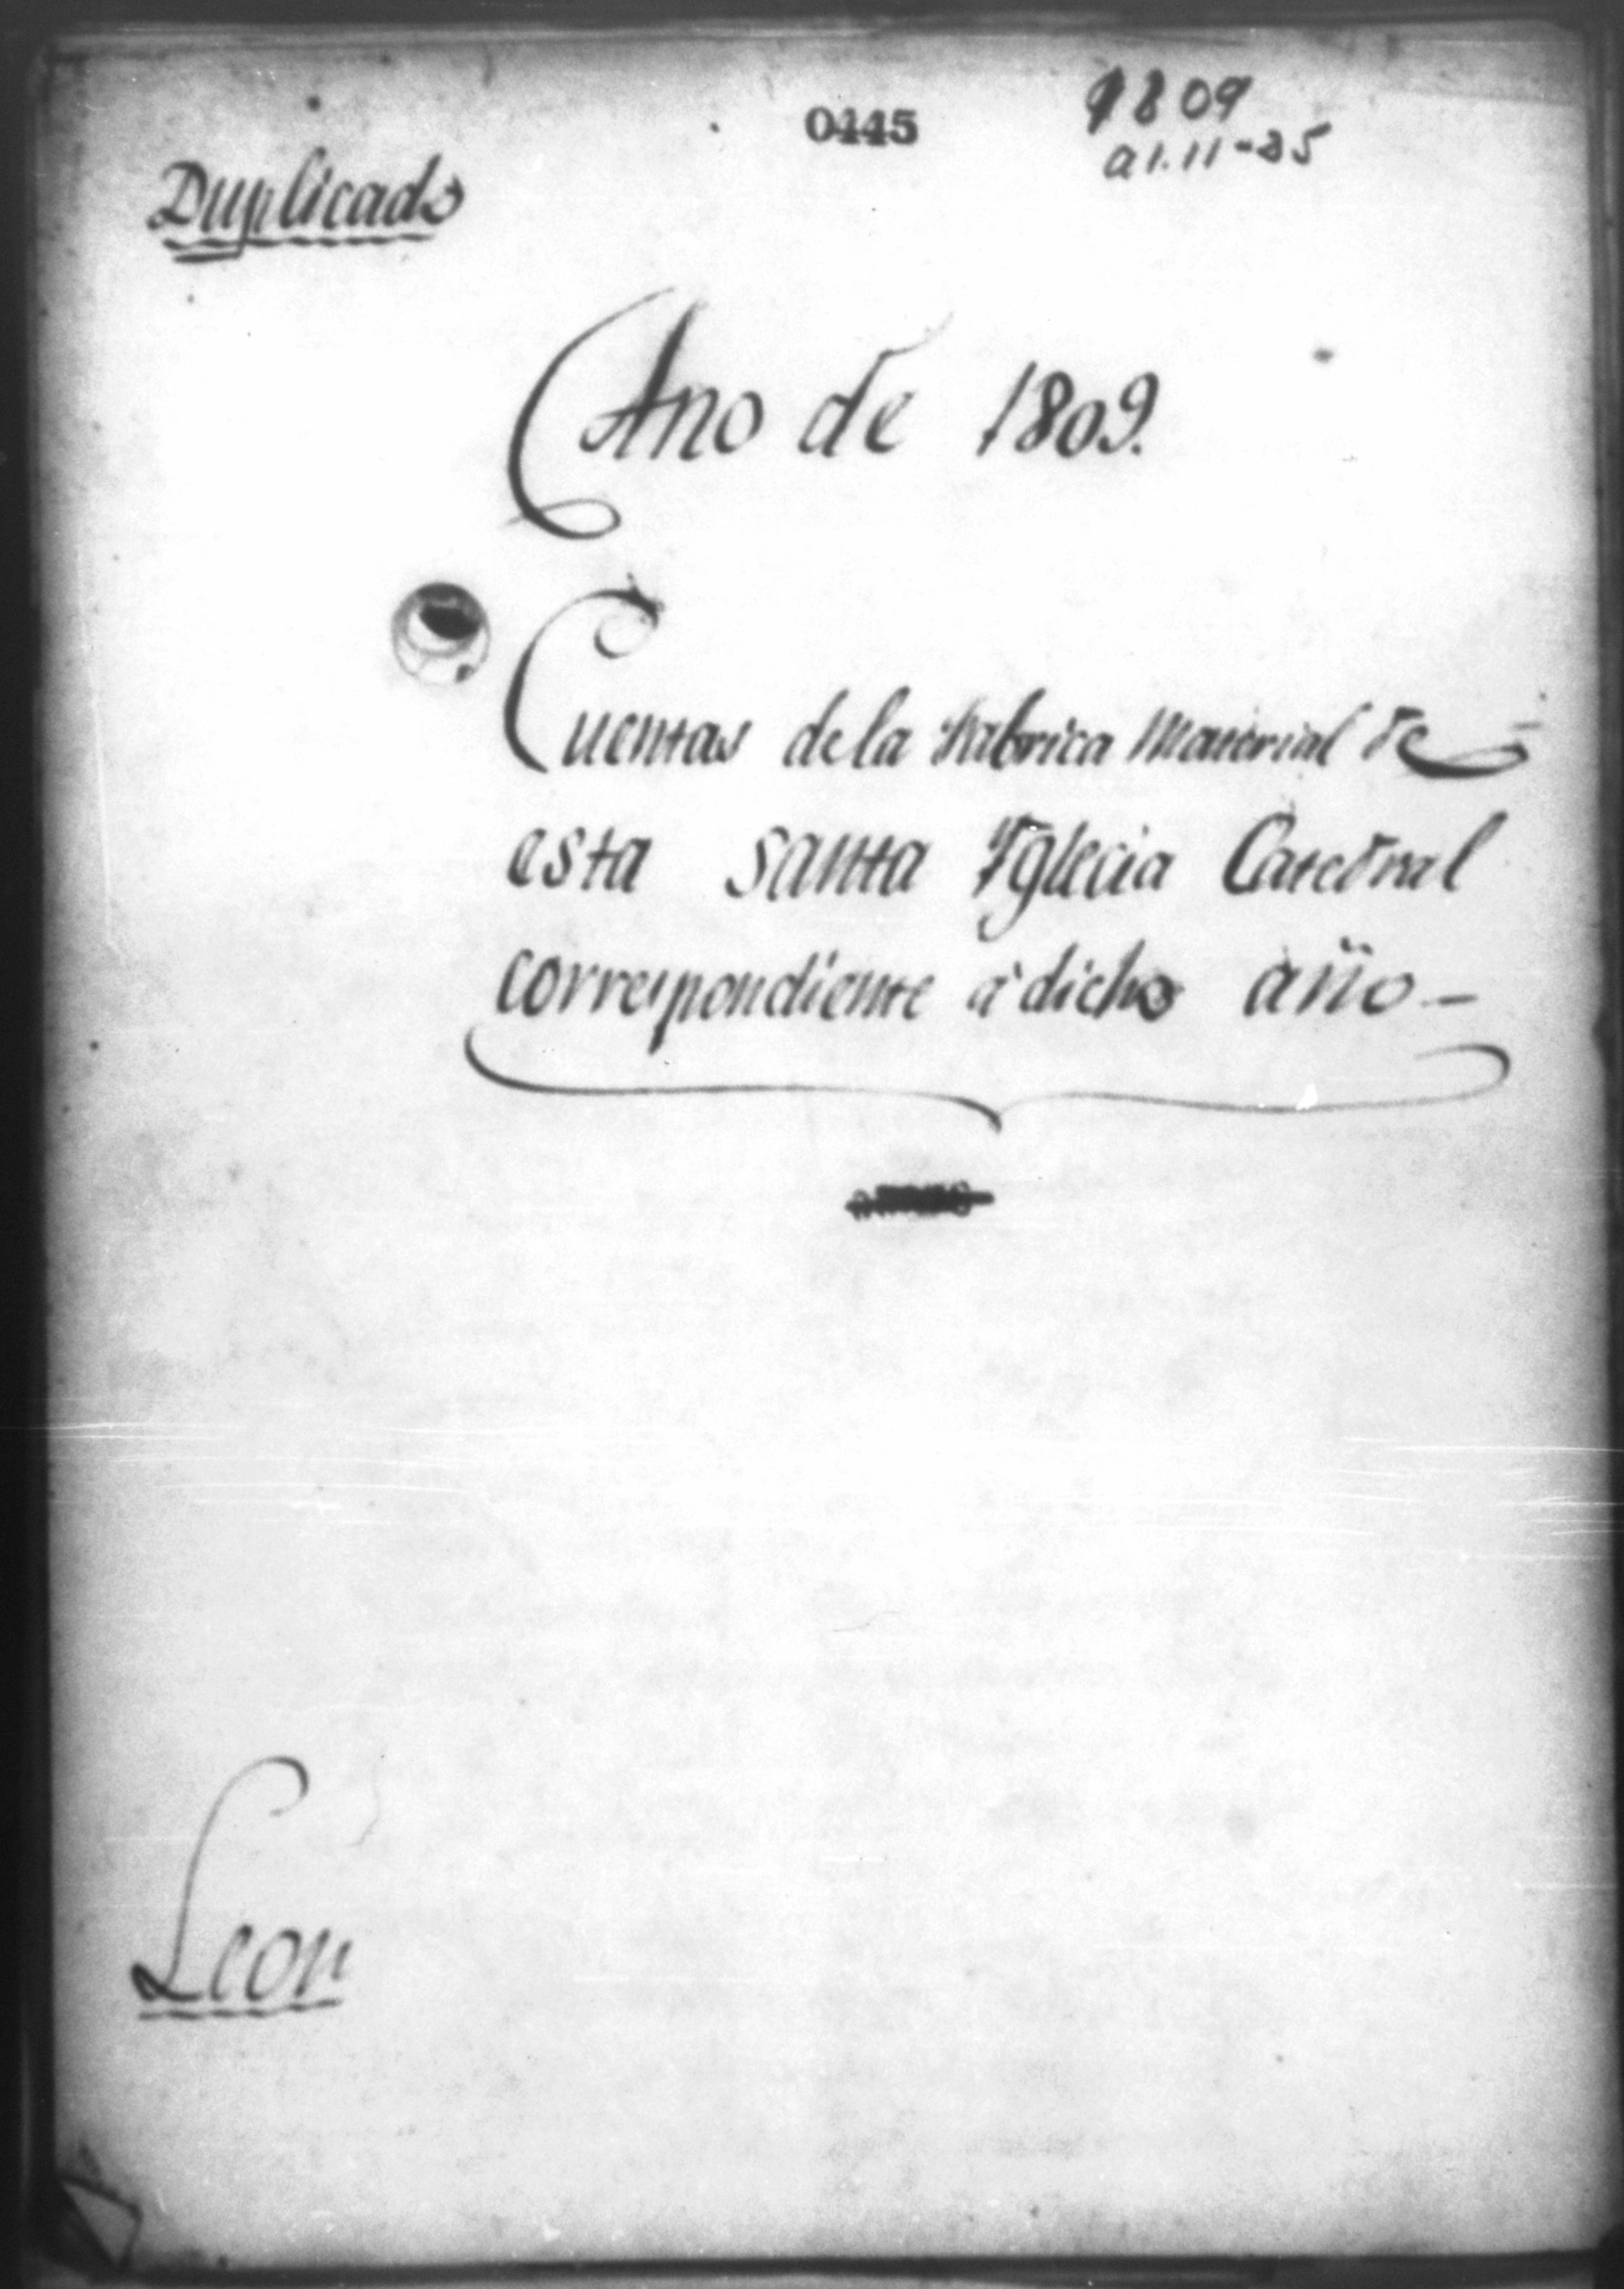 0445
1809
a1.11-25
Duplicado
Año de 1809.
Cuentas de la Fabrica Material de
esta santa Yglecia Catedral
correspondiente à dicho año-
Leon